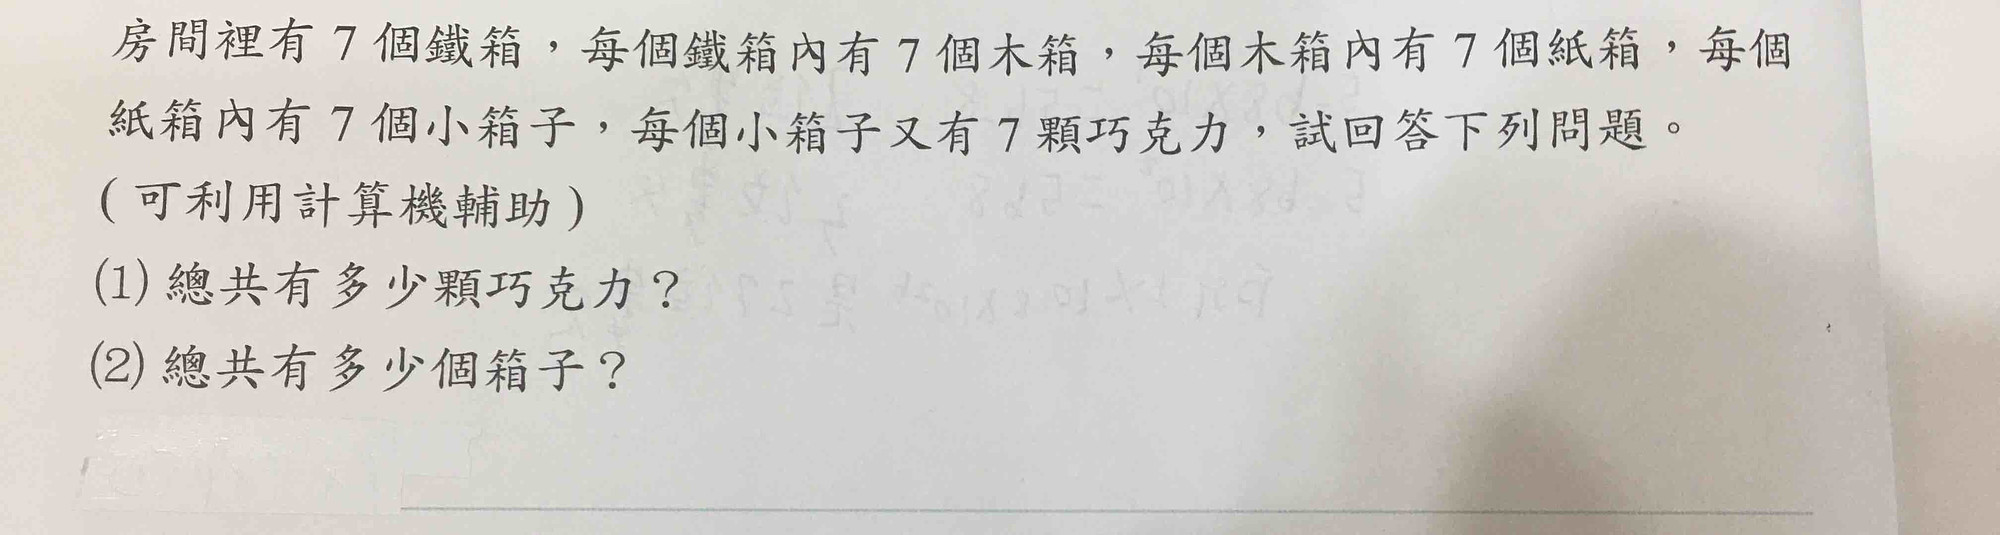 房間裡有 7 個鐵箱，每個鐵箱內有 7 個木箱，每個木箱內有 7 個紙箱，每個
紙箱內有 7 個小箱子，每個小箱子又有 7 顆巧克力，試回答下列問題。
(可利用計算機輔助)
(1) 總共有多少顆巧克力？
(2) 總共有多少個箱子？